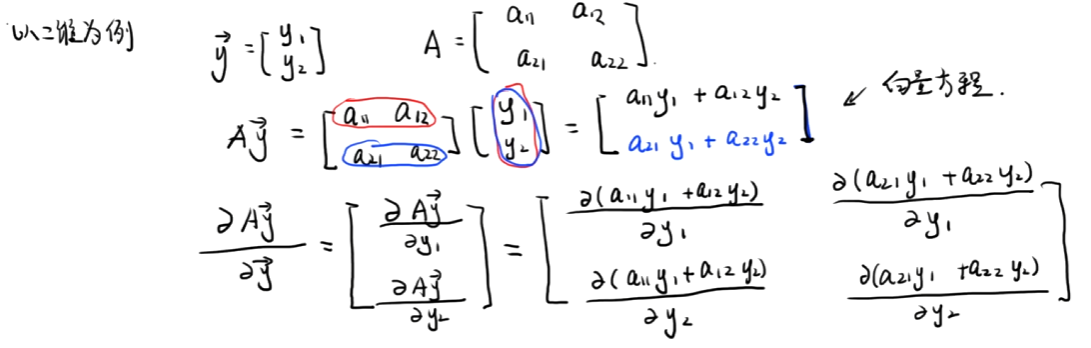 以二维为例
$\vec{y} = \begin{bmatrix} y_1 \\ y_2 \end{bmatrix}$ $A = \begin{bmatrix} a_{11} & a_{12} \\ a_{21} & a_{22} \end{bmatrix}.$
$A\vec{y} = \begin{bmatrix} a_{11} & a_{12} \\ a_{21} & a_{22} \end{bmatrix} \begin{bmatrix} y_1 \\ y_2 \end{bmatrix} = \begin{bmatrix} a_{11}y_1 + a_{12}y_2 \\ a_{21}y_1 + a_{22}y_2 \end{bmatrix}$ ↙ 向量方程.
$\frac{\partial A\vec{y}}{\partial \vec{y}} = \begin{bmatrix} \frac{\partial A\vec{y}}{\partial y_1} \\ \frac{\partial A\vec{y}}{\partial y_2} \end{bmatrix} = \begin{bmatrix} \frac{\partial (a_{11}y_1 + a_{12}y_2)}{\partial y_1} & \frac{\partial (a_{21}y_1 + a_{22}y_2)}{\partial y_1} \\ \frac{\partial (a_{11}y_1 + a_{12}y_2)}{\partial y_2} & \frac{\partial (a_{21}y_1 + a_{22}y_2)}{\partial y_2} \end{bmatrix}$